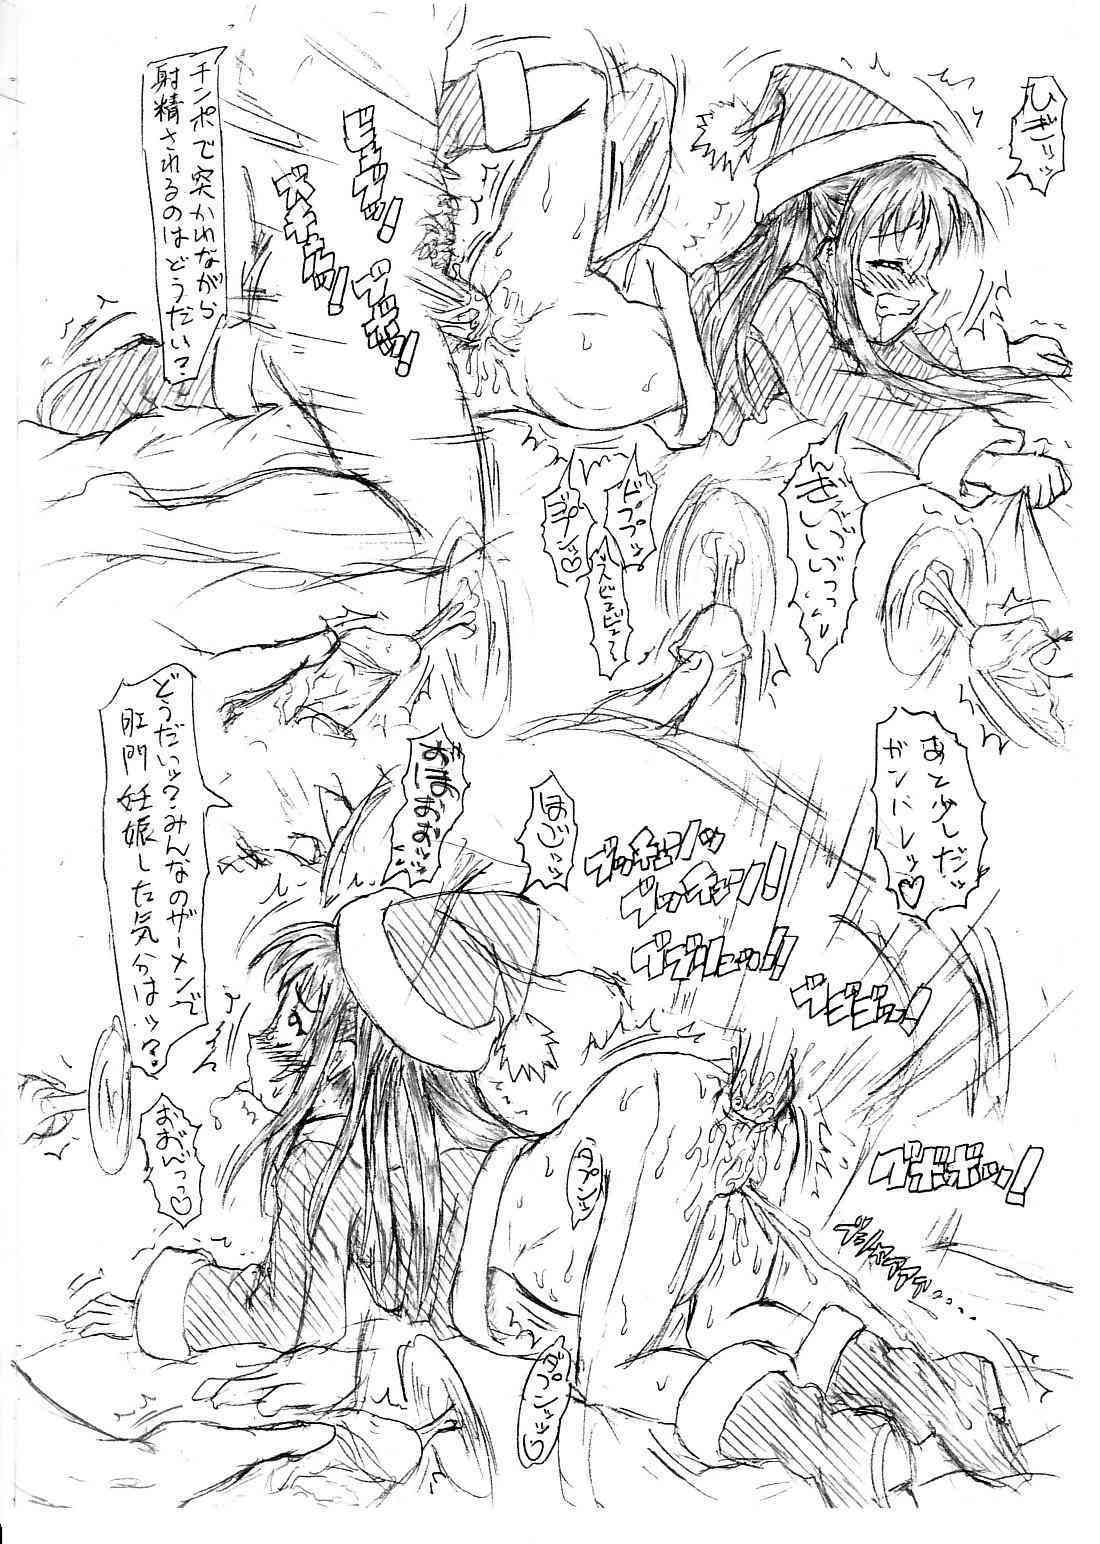 ひぎッッ
チンポで突かれながら
射精されるのはどうだい?
ビュブッ!
ズキュウッ!
ブボッ!
んぎいいいっっ
ドププッ
あと少しだッ
ガンバレッ♡
どうだいッ?みんなのザーメンで
肛門妊娠した気分はッ?
おほおおッ
ほごぉっ
ブッチュンッ
ブッチュン!
ブブリュッ!!
ブビビッ!
ブボボッ!
おおんっっ♡
タプンッ